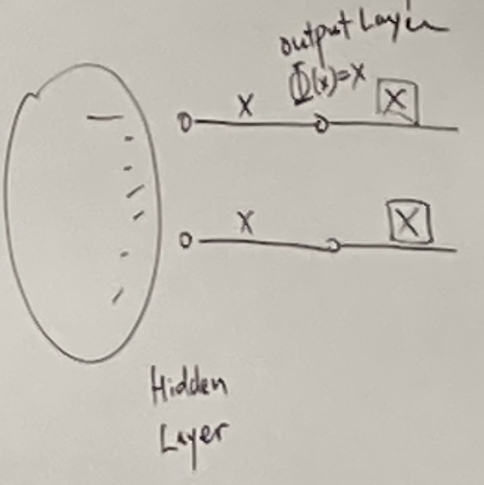 output Layer
Φ(x)=X
X
X
X
X
Hidden
Layer